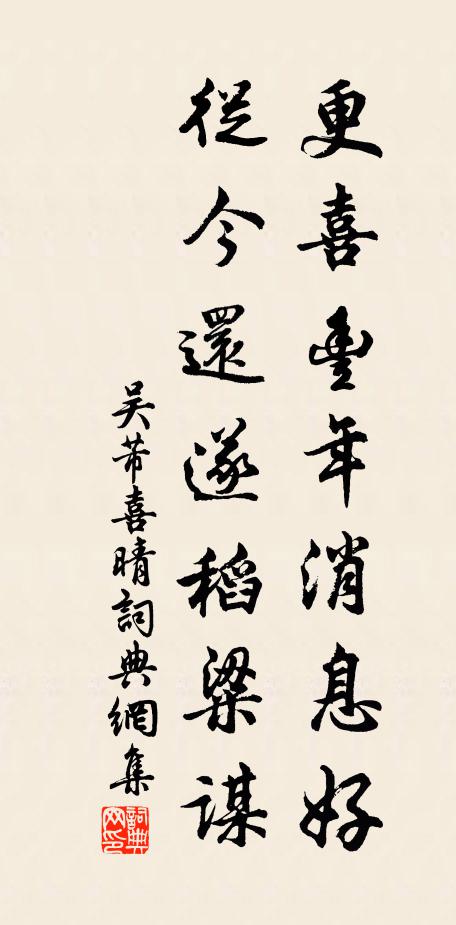 更喜豐年消息好
從今還遂稻粱謀
吳芾喜晴詞典網集
詞典網印